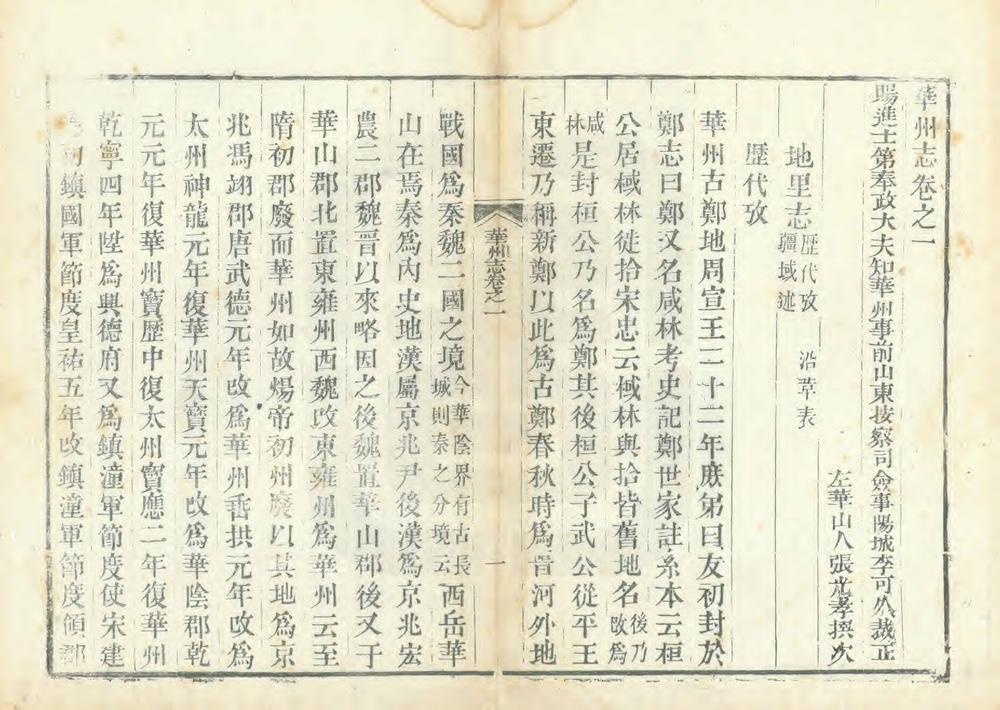 華州志卷之一
賜進士第奉政大夫知華州事前山東按察司僉事陽城李可久裁正
左華山人張光孝撰次
地里志歷代攷 沿革表 疆域述
歷代攷
華州古鄭地周宣王二十二年庶弟曰友初封於
鄭志曰鄭又名咸林考史記鄭世家註系本云桓
公居棫林徙拾宋忠云棫林與拾皆舊地名後乃改爲
咸林是封桓公乃名爲鄭其後桓公子武公從平王
東遷乃稱新鄭以此爲古鄭春秋時爲晉河外地
華州志卷之一
一
戰國爲秦魏二國之境今華陰界有古長城則秦之分境云西岳華
山在焉秦爲內史地漢屬京兆尹後漢爲京兆宏
農二郡魏晉以來略因之後魏置華山郡後又于
華山郡北置東雍州西魏改東雍州爲華州云至
隋初郡廢而華州如故煬帝初州廢以其地爲京
兆馮翊郡唐武德元年改爲華州垂拱元年改爲
太州神龍元年復華州天寶元年改爲華陰郡乾
元元年復華州寶歷中復太州寶應二年復華州
乾寧四年陞爲興德府又爲鎮潼軍節度使宋建
初鎮國軍節度皇祐五年改鎮潼軍節度領郡